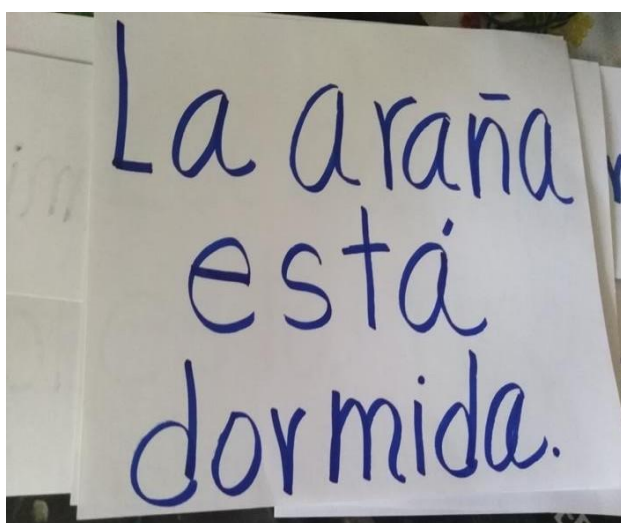 La araña
está
dormida.